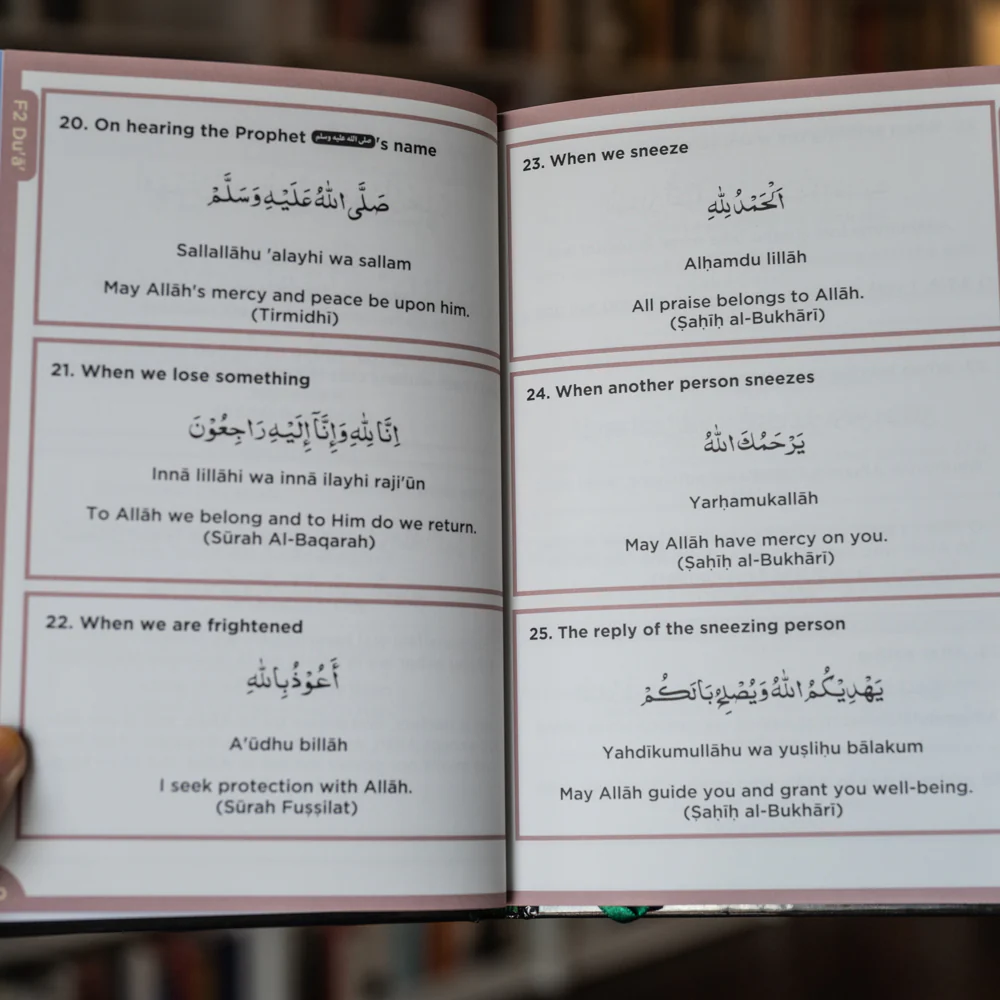 F2 Du'ā'
20. On hearing the Prophet صلى الله عليه وسلم's name
صَلَّى اللهُ عَلَيْهِ وَسَلَّمْ
Sallallāhu 'alayhi wa sallam
May Allāh's mercy and peace be upon him.
(Tirmidhī)
21. When we lose something
اِنَّا لِلّٰهِ وَإِنَّآ إِلَيْهِ رَاجِعُوْنَ
Innā lillāhi wa innā ilayhi raji'ūn
To Allāh we belong and to Him do we return.
(Sūrah Al-Baqarah)
22. When we are frightened
أَعُوْذُ بِاللهِ
A'ūdhu billāh
I seek protection with Allāh.
(Sūrah Fuṣṣilat)
23. When we sneeze
اَلْحَمْدُ لِلّٰهِ
Alḥamdu lillāh
All praise belongs to Allāh.
(Ṣaḥīḥ al-Bukhārī)
24. When another person sneezes
يَرْحَمُكَ اللهُ
Yarḥamukallāh
May Allāh have mercy on you.
(Ṣaḥīḥ al-Bukhārī)
25. The reply of the sneezing person
يَهْدِيْكُمُ اللهُ وَيُصْلِحُ بَالَكُمْ
Yahdīkumullāhu wa yuṣliḥu bālakum
May Allāh guide you and grant you well-being.
(Ṣaḥīḥ al-Bukhārī)